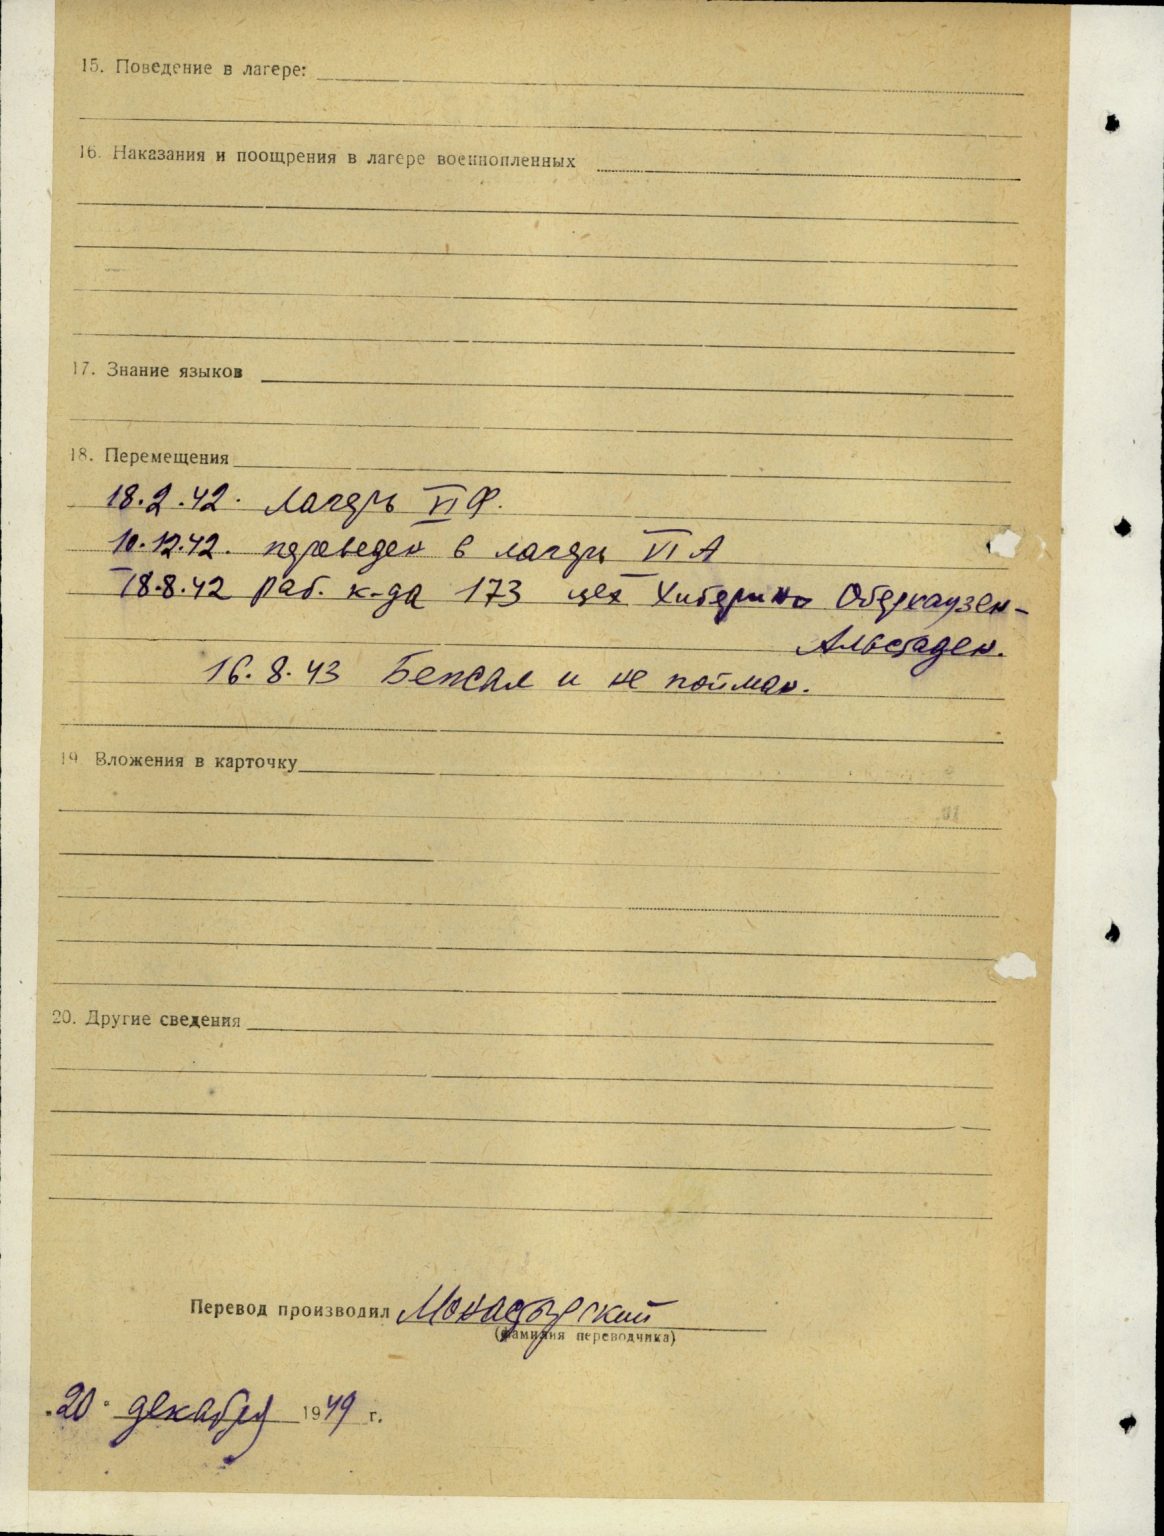 15. Поведение в лагере:
16. Наказания и поощрения в лагере военнопленных
17. Знание языков
18. Перемещения
18.2.42. лагерь VI Ф.
10.12.42. переведен в лагерь VI А
18.8.42 раб. к-да 173 цех Хиберниа Оберхаузен-
Альстаден.
16.8.43 Бежал и не пойман.
19. Вложения в карточку
20. Другие сведения
Перевод производил Монастырский
(фамилия переводчика)
„20" декабря 1949 г.